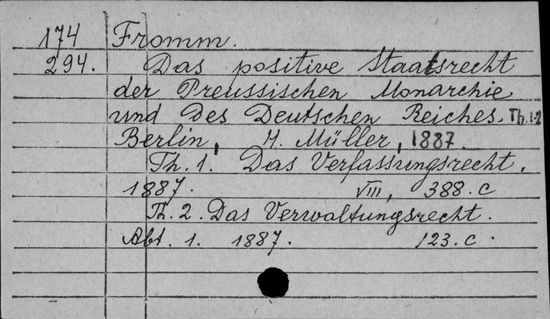 174 Fromm.
294. Das positive Staatsrecht
der Preussischen Monarchie
und des Deutschen Reiches. Th. 1-2
Berlin, H. Müller, 1887.
Th. 1. Das Verfassungsrecht.
1887. VIII, 388. c
Th. 2. Das Verwaltungsrecht.
Abt. 1. 1887. 123. c.